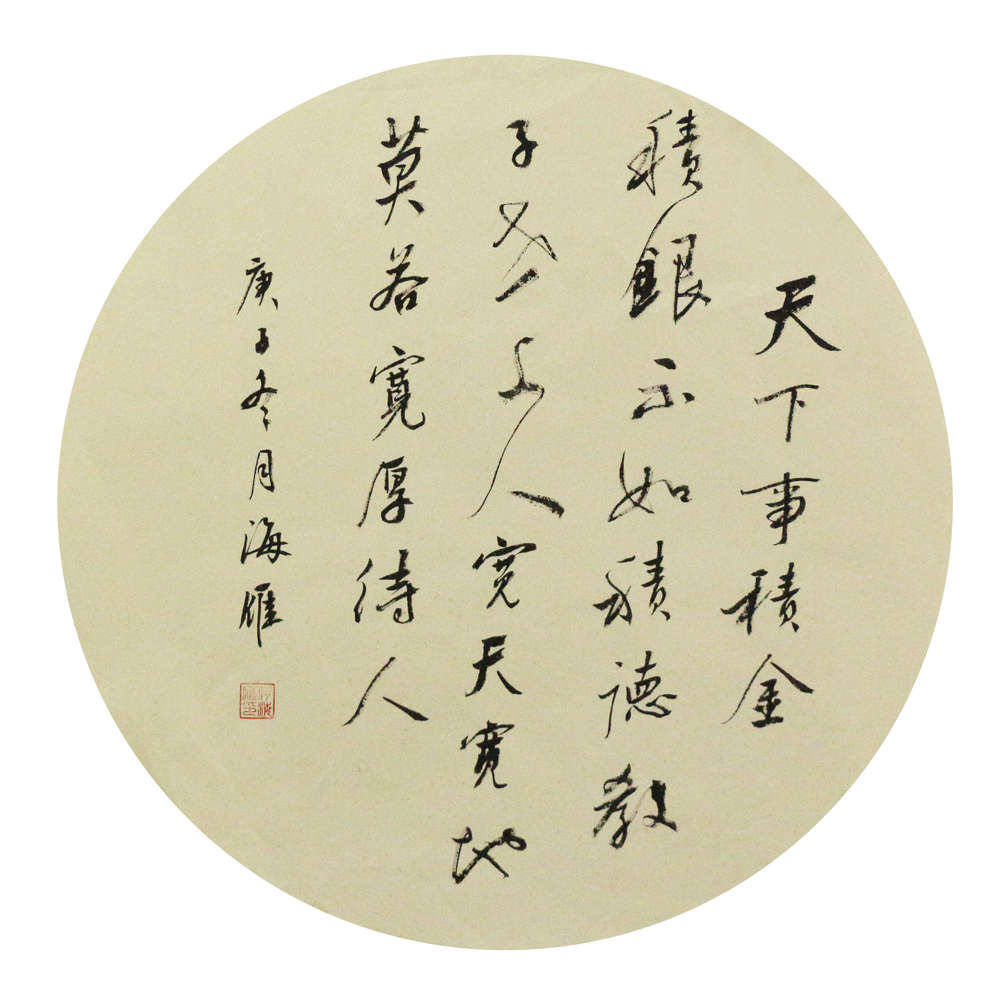 天下事積金
積銀不如積德教
子世上人寬天寬地
莫若寬厚待人
庚子冬月海雁